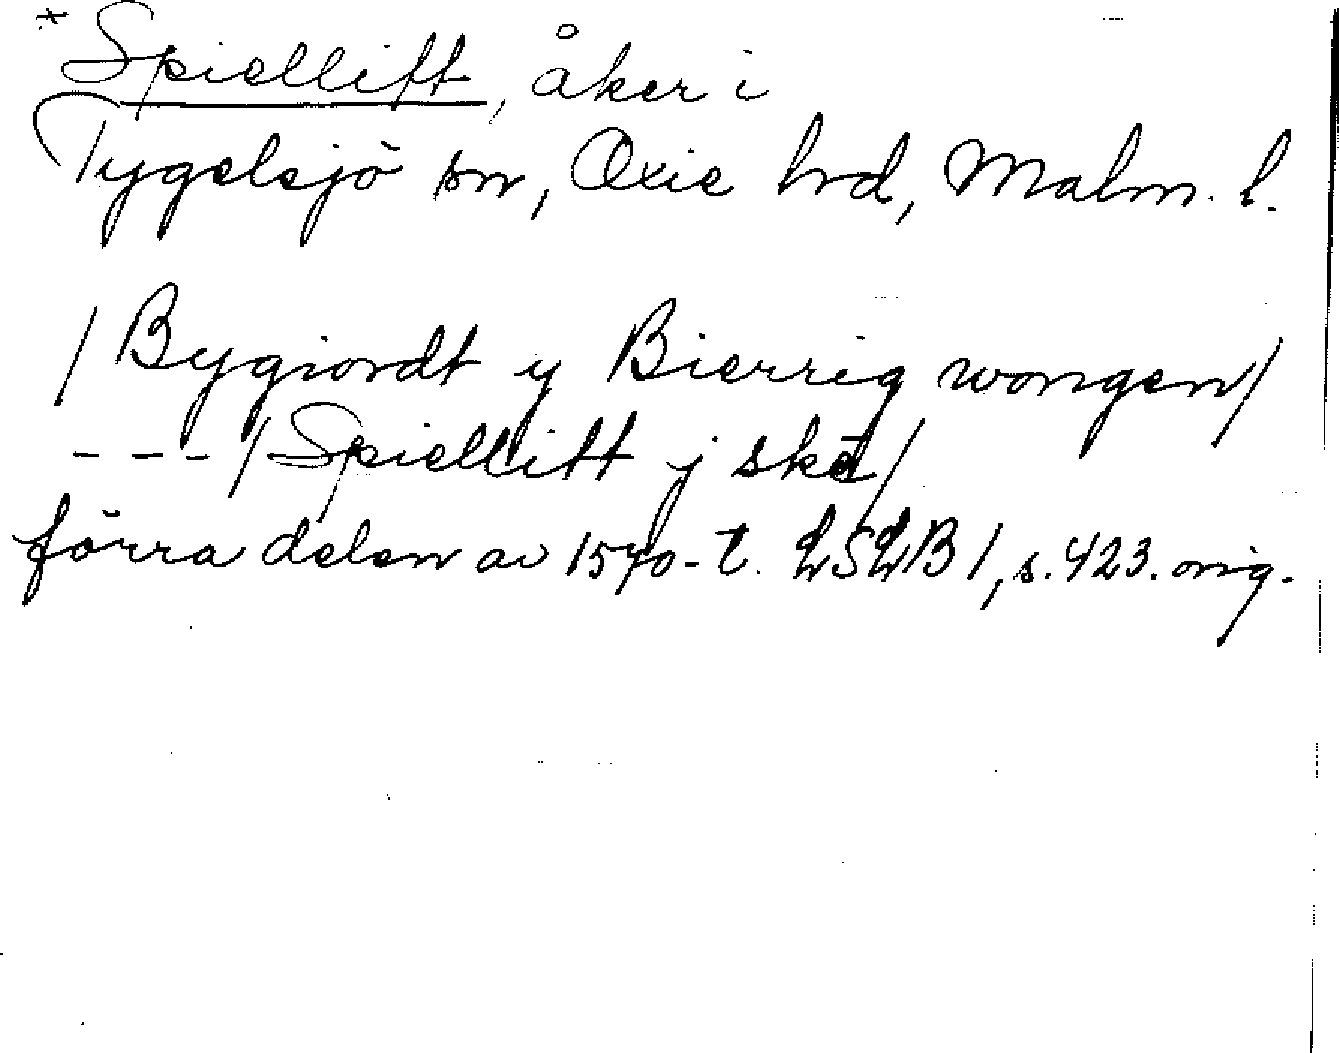 * Spiellitt, åker i
Tygelsjö sn, Oxie hrd, Malm. l.
/ Bygiordt y Bierrig wongen/
---/ Spiellitt j ske/
förra delen av 1570-t. LSLB 1, s. 423. orig.